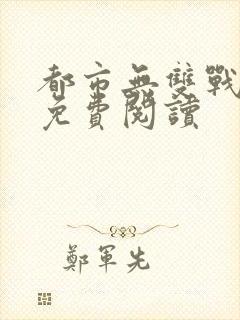 都市無雙戰
免費閱讀
鄭軍先